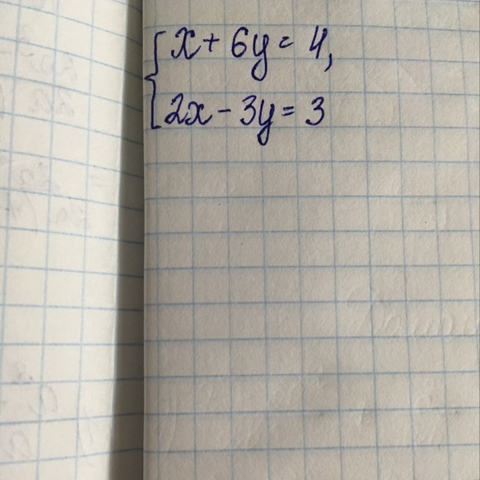 {x + 6y = 4,
2x - 3y = 3